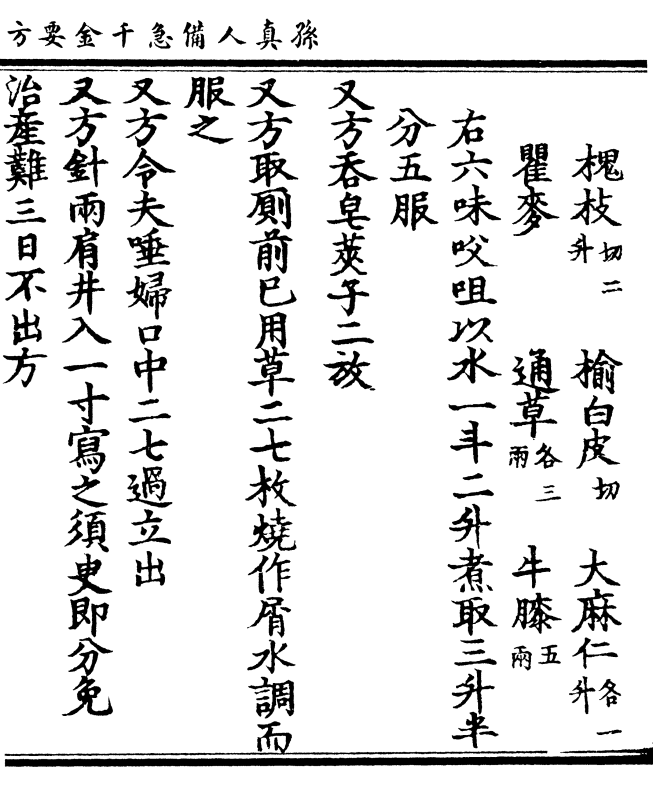 孫真人備急千金要方
槐枝切二升 榆白皮切 大麻仁各一升
瞿麥 通草各三兩 牛膝五兩
右六味㕮咀以水一斗二升煮取三升半
分五服
又方吞皂莢子二放
又方取厠前已用草二七枚燒作屑水調而
服之
又方令夫唾婦口中二七過立出
又方針兩肩井入一寸寫之須臾即分免
治產難三日不出方